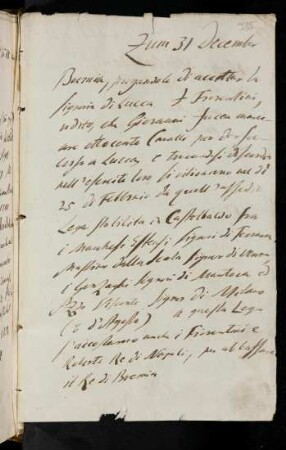 Zum 31 December
Boemia, pregandolo di accettar la
signoria di Lucca. I Fiorentini,
udito, che Giovanni facea marciare
ottocento Cavalli per
a Lucca, e
nell'esercito loro, si ritirarono nel dì
25 di Febbrajo da quell'assedio
Lega stabilita in Castelbaldo fra
i Marchesi Estensi Signori di Ferrara
Mastino della Scala Signor di Verona,
i Gonzaghi Signori di Mantova, ed
Azzo Visconte Signor di Milano
(8 d'Agosto) a questa Lega
s'accostarono anche i Fiorentini e
Roberto Re di Napoli, per abbassare
il Re di Boemia